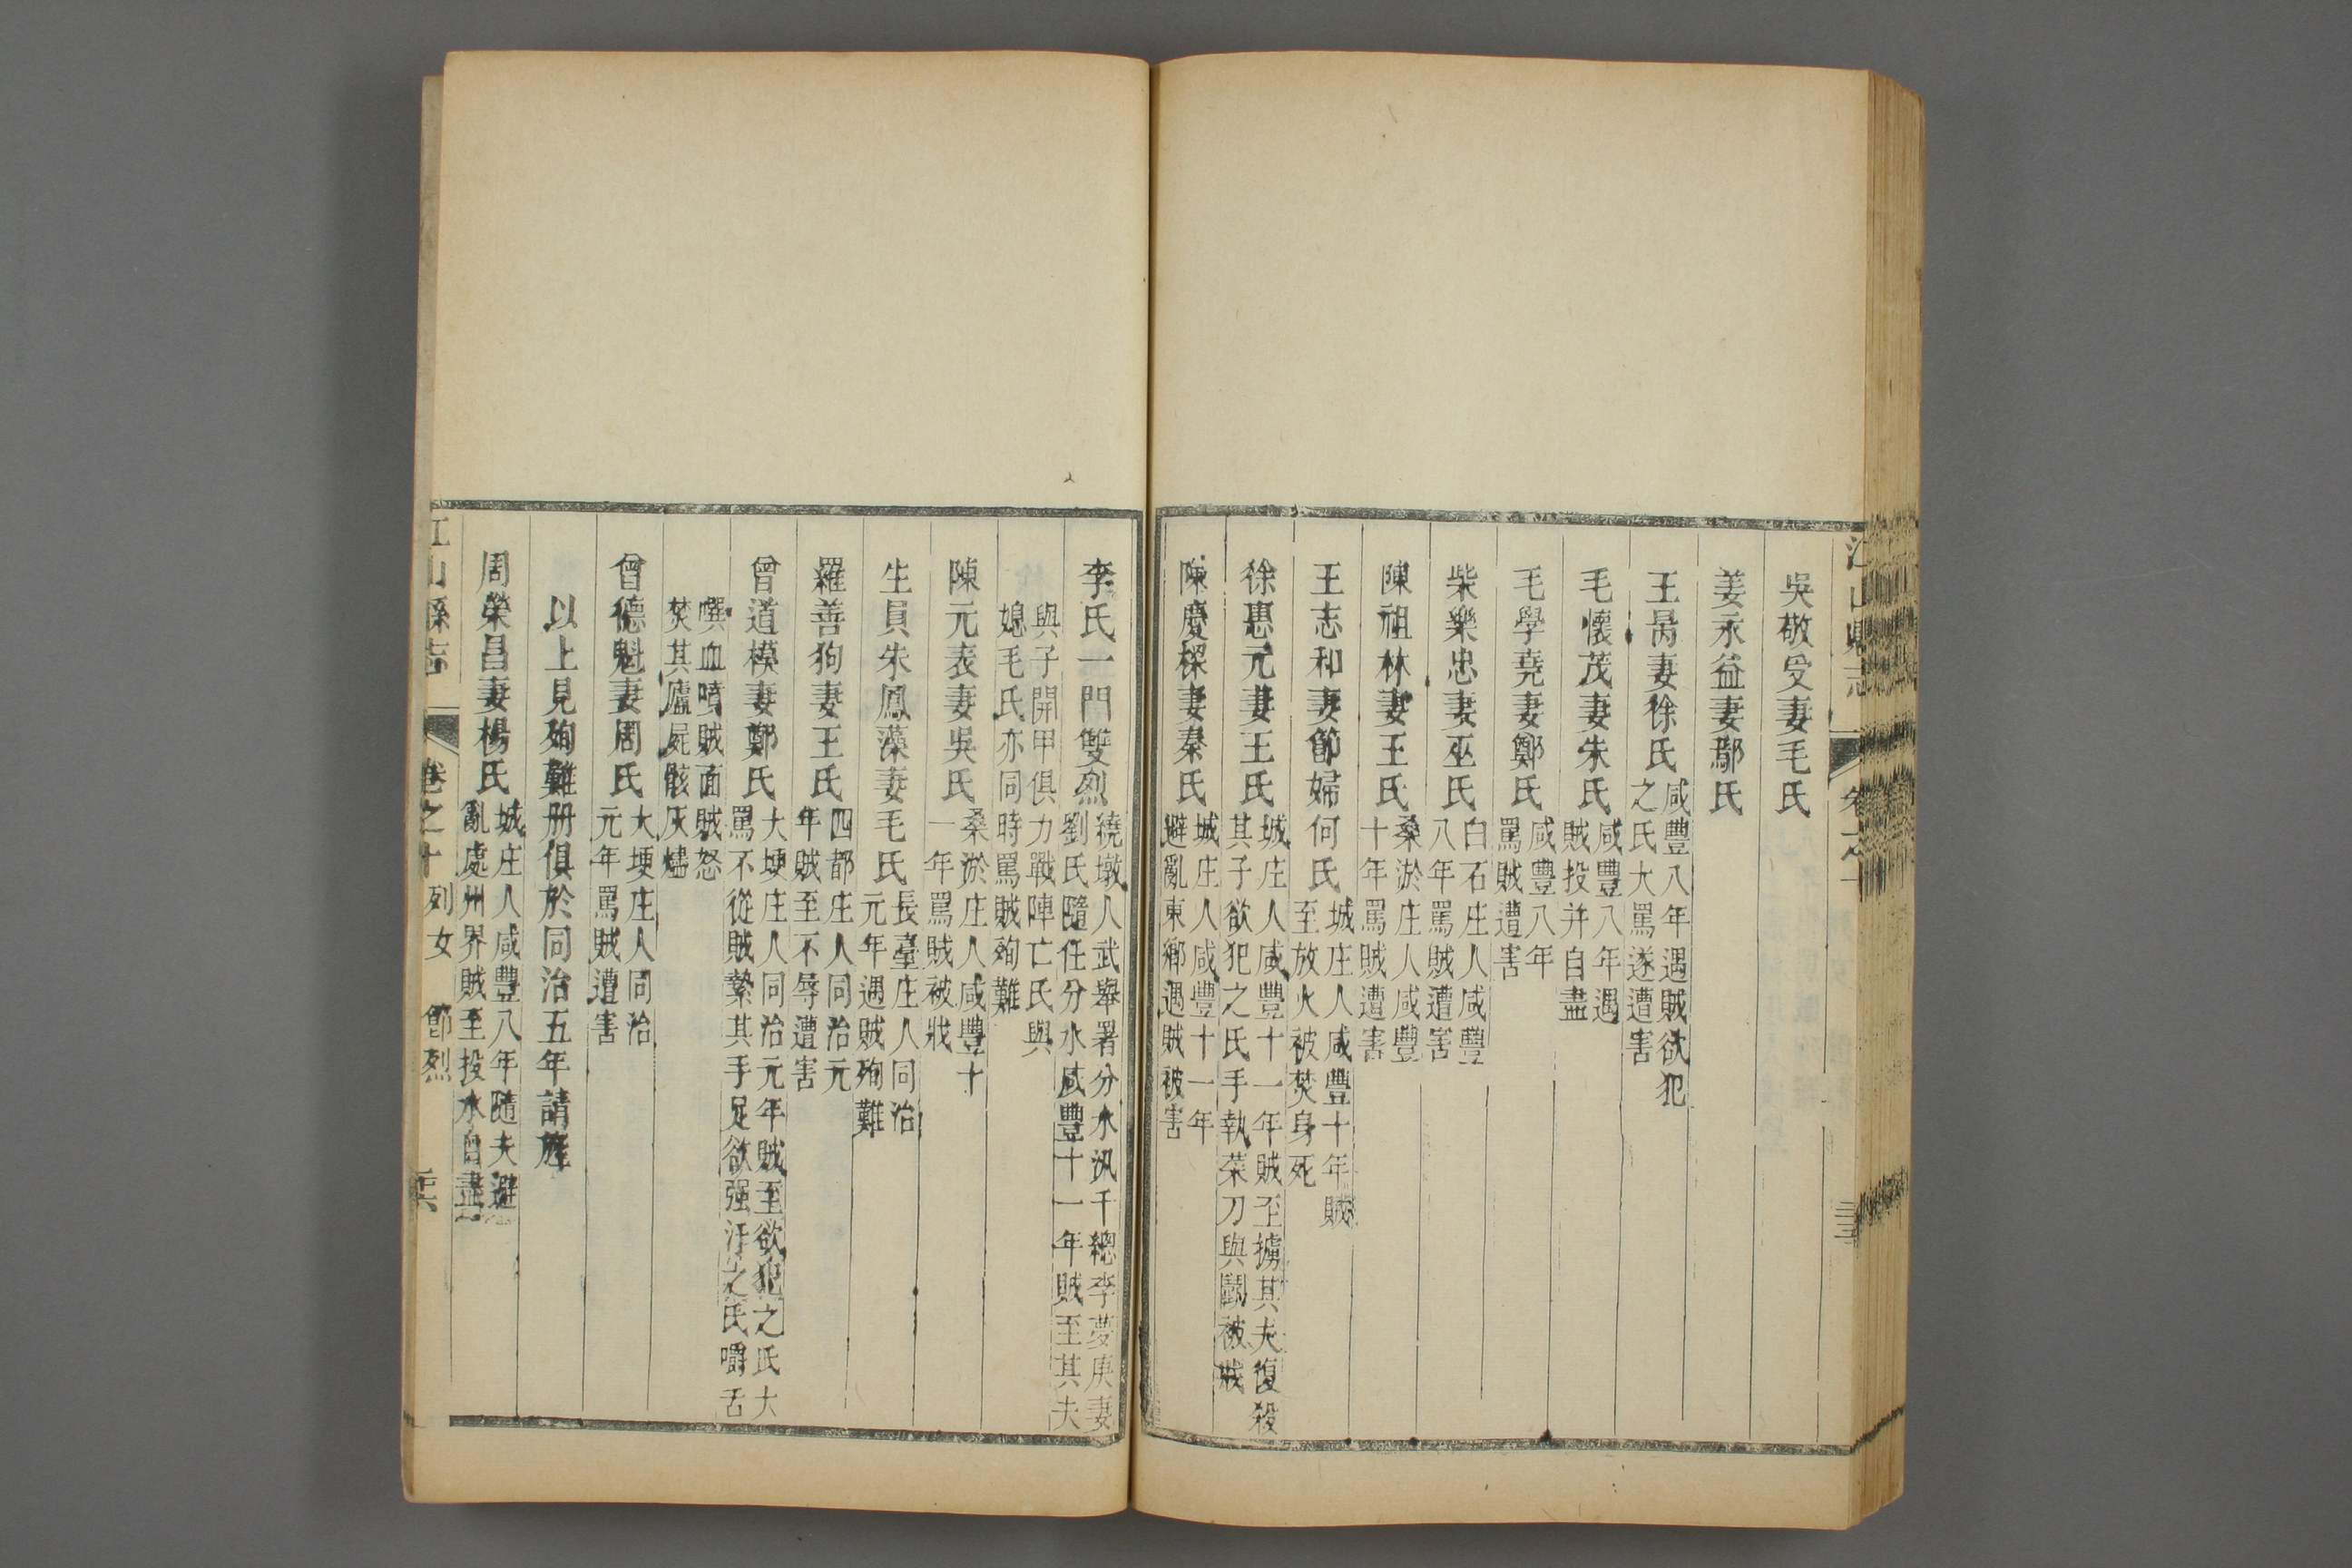 吳敬受妻毛氏
姜永益妻鄢氏
王昺妻徐氏
咸豐八年遇賊欲犯
之氏大罵遂遭害
毛懷茂妻朱氏
咸豐八年遇
賊投井自盡
毛學堯妻鄭氏
咸豐八年
罵賊遭害
柴樂忠妻巫氏
白石庄人咸豐
八年罵賊遭害
陳祖林妻王氏
桑淤庄人咸豐
十年罵賊遭害
王志和妻節婦何氏
城庄人咸豐十年賊
至放火被焚身死
徐惠元妻王氏
城庄人咸豐十一年賊至擄其夫復殺
其子欲犯之氏手執菜刀與鬬被戕
陳慶檪妻秦氏
城庄人咸豐十一年
避亂東鄉遇賊被害
李氏一門雙烈
繞墩人武舉署分水汛千總李夢庚妻
劉氏隨任分水咸豐十一年賊至其夫
與子開甲俱力戰陣亡氏與
媳毛氏亦同時罵賊殉難
陳元表妻吳氏
桑淤庄人咸豐十
一年罵賊被戕
生員朱鳳藻妻毛氏
長臺庄人同治
元年遇賊殉難
羅善狗妻王氏
四都庄人同治元
年賊至不辱遭害
曾道模妻鄭氏
大埂庄人同治元年賊至欲犯之氏大
罵不從賊縶其手足欲强汙之氏嚼舌
噀血噴賊面賊怒
焚其廬屍骸灰燼
曾德魁妻周氏
大埂庄人同治
元年罵賊遭害
以上見殉難册俱於同治五年請旌
周榮昌妻楊氏
城庄人咸豐八年隨夫避
亂處州界賊至投水自盡
江山縣志
卷之十
列女
節烈